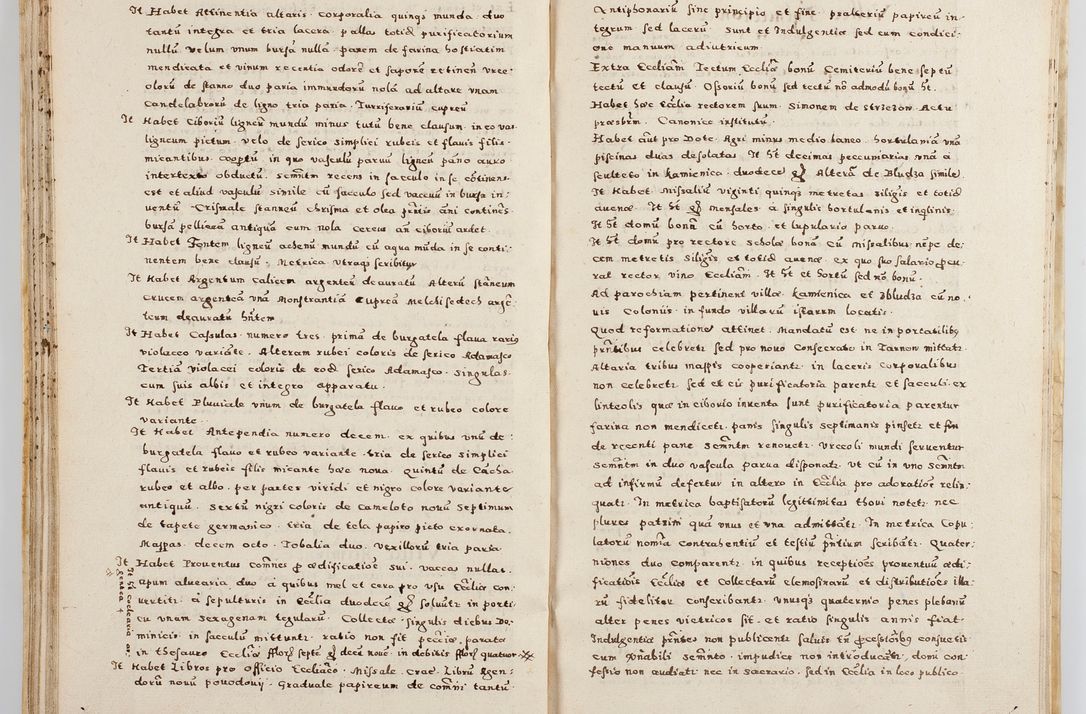 It Habet Attinentia altaris. Corporalia quinqꝫ munda. duo
tantũ integra et tria lacera. pallas totid. purificatorium
nullũ. velum vnum bursã nullã. panem de farina hostiatim
mendicata et vinum recentia odorẽ et saporẽ retinen. vrce
olorũ de stanno duo paria immundorũ nolã ad altare vnam
Candelabrorũ de ligno tria paria. Turriferariũ cupreũ
It Habet Ciboriũ ligneũ mundũ minus tutũ bene clausum. in eo vas
ligneum pictum. velo de serico simplici rubeis et flauis filis
micantibus. cooptũ, in quo vasculũ paruũ ligneũ pãno auro
intertexto obductũ. semñtm recens in sacculo in se cõtinens
est et aliud vasculũ simile cũ sacculo sed vacuũ in bursa in
uentũ. Crismale stanneũ chrisma et olea continẽs
bursã pelliceã antiquã cum nola. Cereus añ ciboriũ ardet.
It Habet Fontem ligneũ acheñũ mundũ cũ aqua mũda in se conti
nentem bene clausũ. Metrica vtraqꝫ scribitur
It Habet Argentum calicem argenteũ deauratũ. Alterũ stãneum
Crucem argenteã vnã. Monstrantiã Cupreã Melchisedech argẽ
teum deauratũ hñtem
It Habet Casulas numero tres. primã de burgatela flaua rario
violaceo variãte. Alteram rubei coloris de serico Adamasco
Tertiã violacei coloris de eod serico Adamasco. Singulas
cum suis albis et integro apparatu.
It Habet Pluuiale vnum de burgatela flauo et rubeo colore
variante.
It Habet Antependia numero decem. ex quibus vnũ de
burgatela flauo et rubeo variante. tria de serico simplici
flauis et rubeis filis micante hæc noua. Quintũ de Cãcha
rubeo et albo. per partes viridi et nigro colore variante
antiquũ. Sextũ nigri coloris de Cameloto nouũ Septimum
de tapete germanico. tria de tela papiro picto exornata.
Mappas decem octo. Tobalia duo. vexillorũ tria paria.
It Habet Prouentus com̃nes ꝓ ædificatioẽ sui. vaccas nullas.
apum aluearia duo à quibus mel et cera pro vsu Eccliæ con
uertitr. à sepulturis in Ecclia duodecẽ soluũtr in porti
cu vnum sexagenam tegularũ. Collecta singulis diebus Do
minicis in sacculũ mittuntr. ratio non fit pecciæ, parata
in thesauro Eccliæ fflor septẽ decẽ nouẽ in debitis fflor quatuor
It Habet Libros pro officio Eccliaco. Missale Crac. Librũ Agen
dorũ nouũ Graduale papireum de com̃ni tantũ
Antiphonariũ sine principio et fine. psalteriũ papireũ in
tegrum sed lacerũ. Sunt et Indulgentiæ sed cum condici
one manuum adiutricum
Extra Eccliam Tectum Eccliæ bonũ Cemiteriũ bene septũ
tectũ et clausũ. Ossoriũ bonũ sed tectũ nõ admodũ bonũ ht.
Habet hæc Ecclia rectorem suum. Simonem de Actu
præsbrm. Canonice institutũ.
Habet aũt pro Dote. Agri minus medio laneo. hortulaniã vnã
piscinas duas desolatas. It ht decimas peccuniarias vnã à
sculteto in kamienica. duodecẽ Alterã de Bludza similẽ
It Habet Missaliũ viginti quinqꝫ metretas siligis et totid
auenæ. It ht mensales à singulis hortulanis et inqlinis.
It ht domũ bonã cũ horto. et lupulario paruo.
It ht domũ pro rectore scholæ bonã cũ missalibus nẽpe de
cem metretis siligis et totid auenæ. ex quo suo salario ꝓcu
rat rector vino Eccliam. It ht et hortũ sed nõ bonũ.
Ad parochiam pertinent villæ kamienica et Bludza cũ no
uis Coloniis in fundo villarũ istarum locatis.
Quod reformationẽ attinet. Mandatũ est ne in portatilibꝫ
pñtibus celebretr sed pro nouo Consecrato in Tarnow mittatr
Altaria tribus mappis cooperiantr in laceris corporalibus
non celebretr. sed et eis purificatoria parentr et sacculi. ex
linteolis quæ in ciborio inuenta sunt purificatoria parentur
farina non mendicetr. panis singulis septimanis pinsetr et
de recenti pane semñtm renouetr. Vrceoli mundi seruentur
semñtm in duo vascula parua disponatr. vt cũ in vno semñtm
ad infirmũ defertur in altero in Ecclia pro adoratioẽ relin
quatr. In metrica baptisatorũ legittimitas thori notetr nec
plures patrini quã vnus et vna admittãtr. In metrica Copu
latorũ nom̃ia contrahentiũ et testiũ pñtium scribãtr. Quater
niones duo comparentr in quibus receptiões prouentũũ ædi
ficatiõis Eccliæ et Collectarũ elemosinarũ et distributiões illa
rũ fideliter conscribantr. vnusqꝫ quaternio penes plebanũ
alter penes vietricos sit. et ratio singulis annis fiat
Indulgentiæ pñtes non publicentr saluis tñ consuetis
cum vñabili semñto. impudicæ non introducãtr, domi con
fessio non audiatr nec in sacrario. sed in Ecclia in loco publico